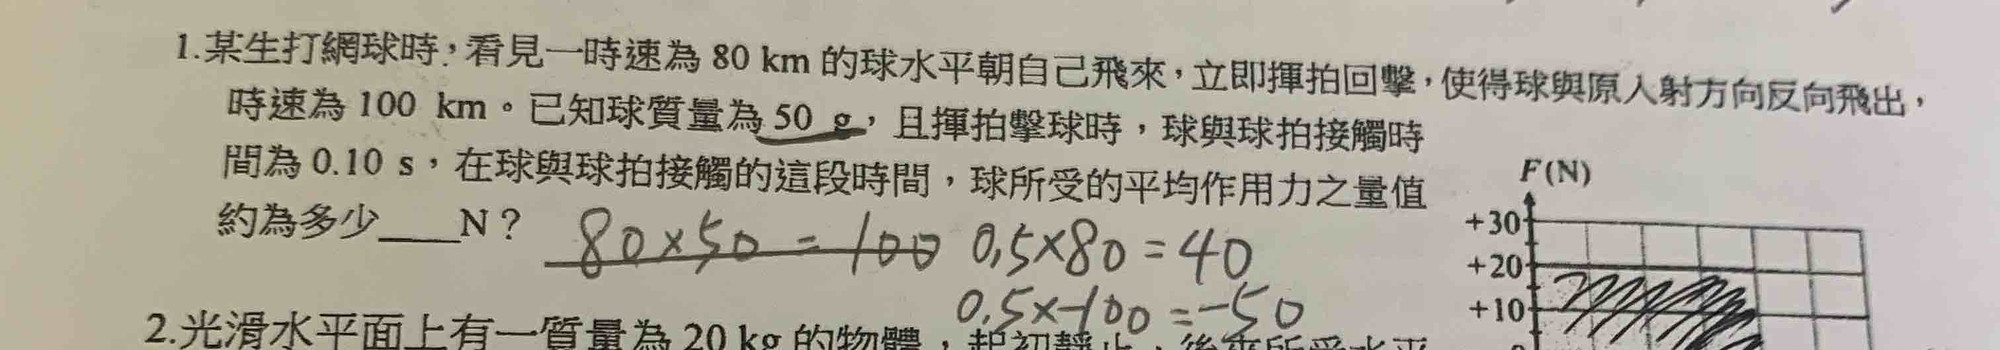 1.某生打網球時，看見一時速為 80 km 的球水平朝自己飛來，立即揮拍回擊，使得球與原入射方向反向飛出，
時速為 100 km。已知球質量為 50 g，且揮拍擊球時，球與球拍接觸時
間為 0.10 s，在球與球拍接觸的這段時間，球所受的平均作用力之量值
約為多少____N？
80×50 = 100
0.5×80 = 40
0.5×-100 = -50
F(N)
+30
+20
+10
2.光滑水平面上有一質量為 20 kg 的物體，起初靜止，後來所受水平